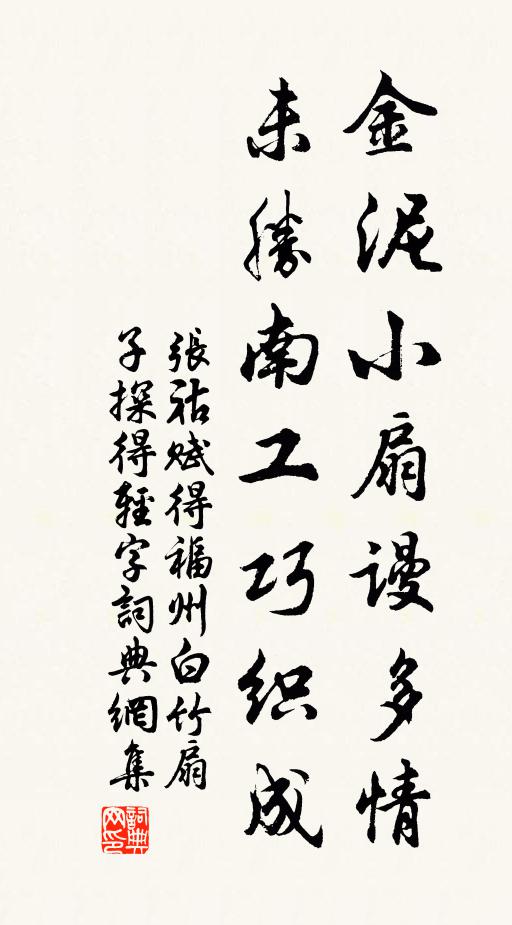 金泥小扇謾多情
未勝南工巧织成
張祜赋得福州白竹扇
子探得輕字詞典網集
詞典
网印